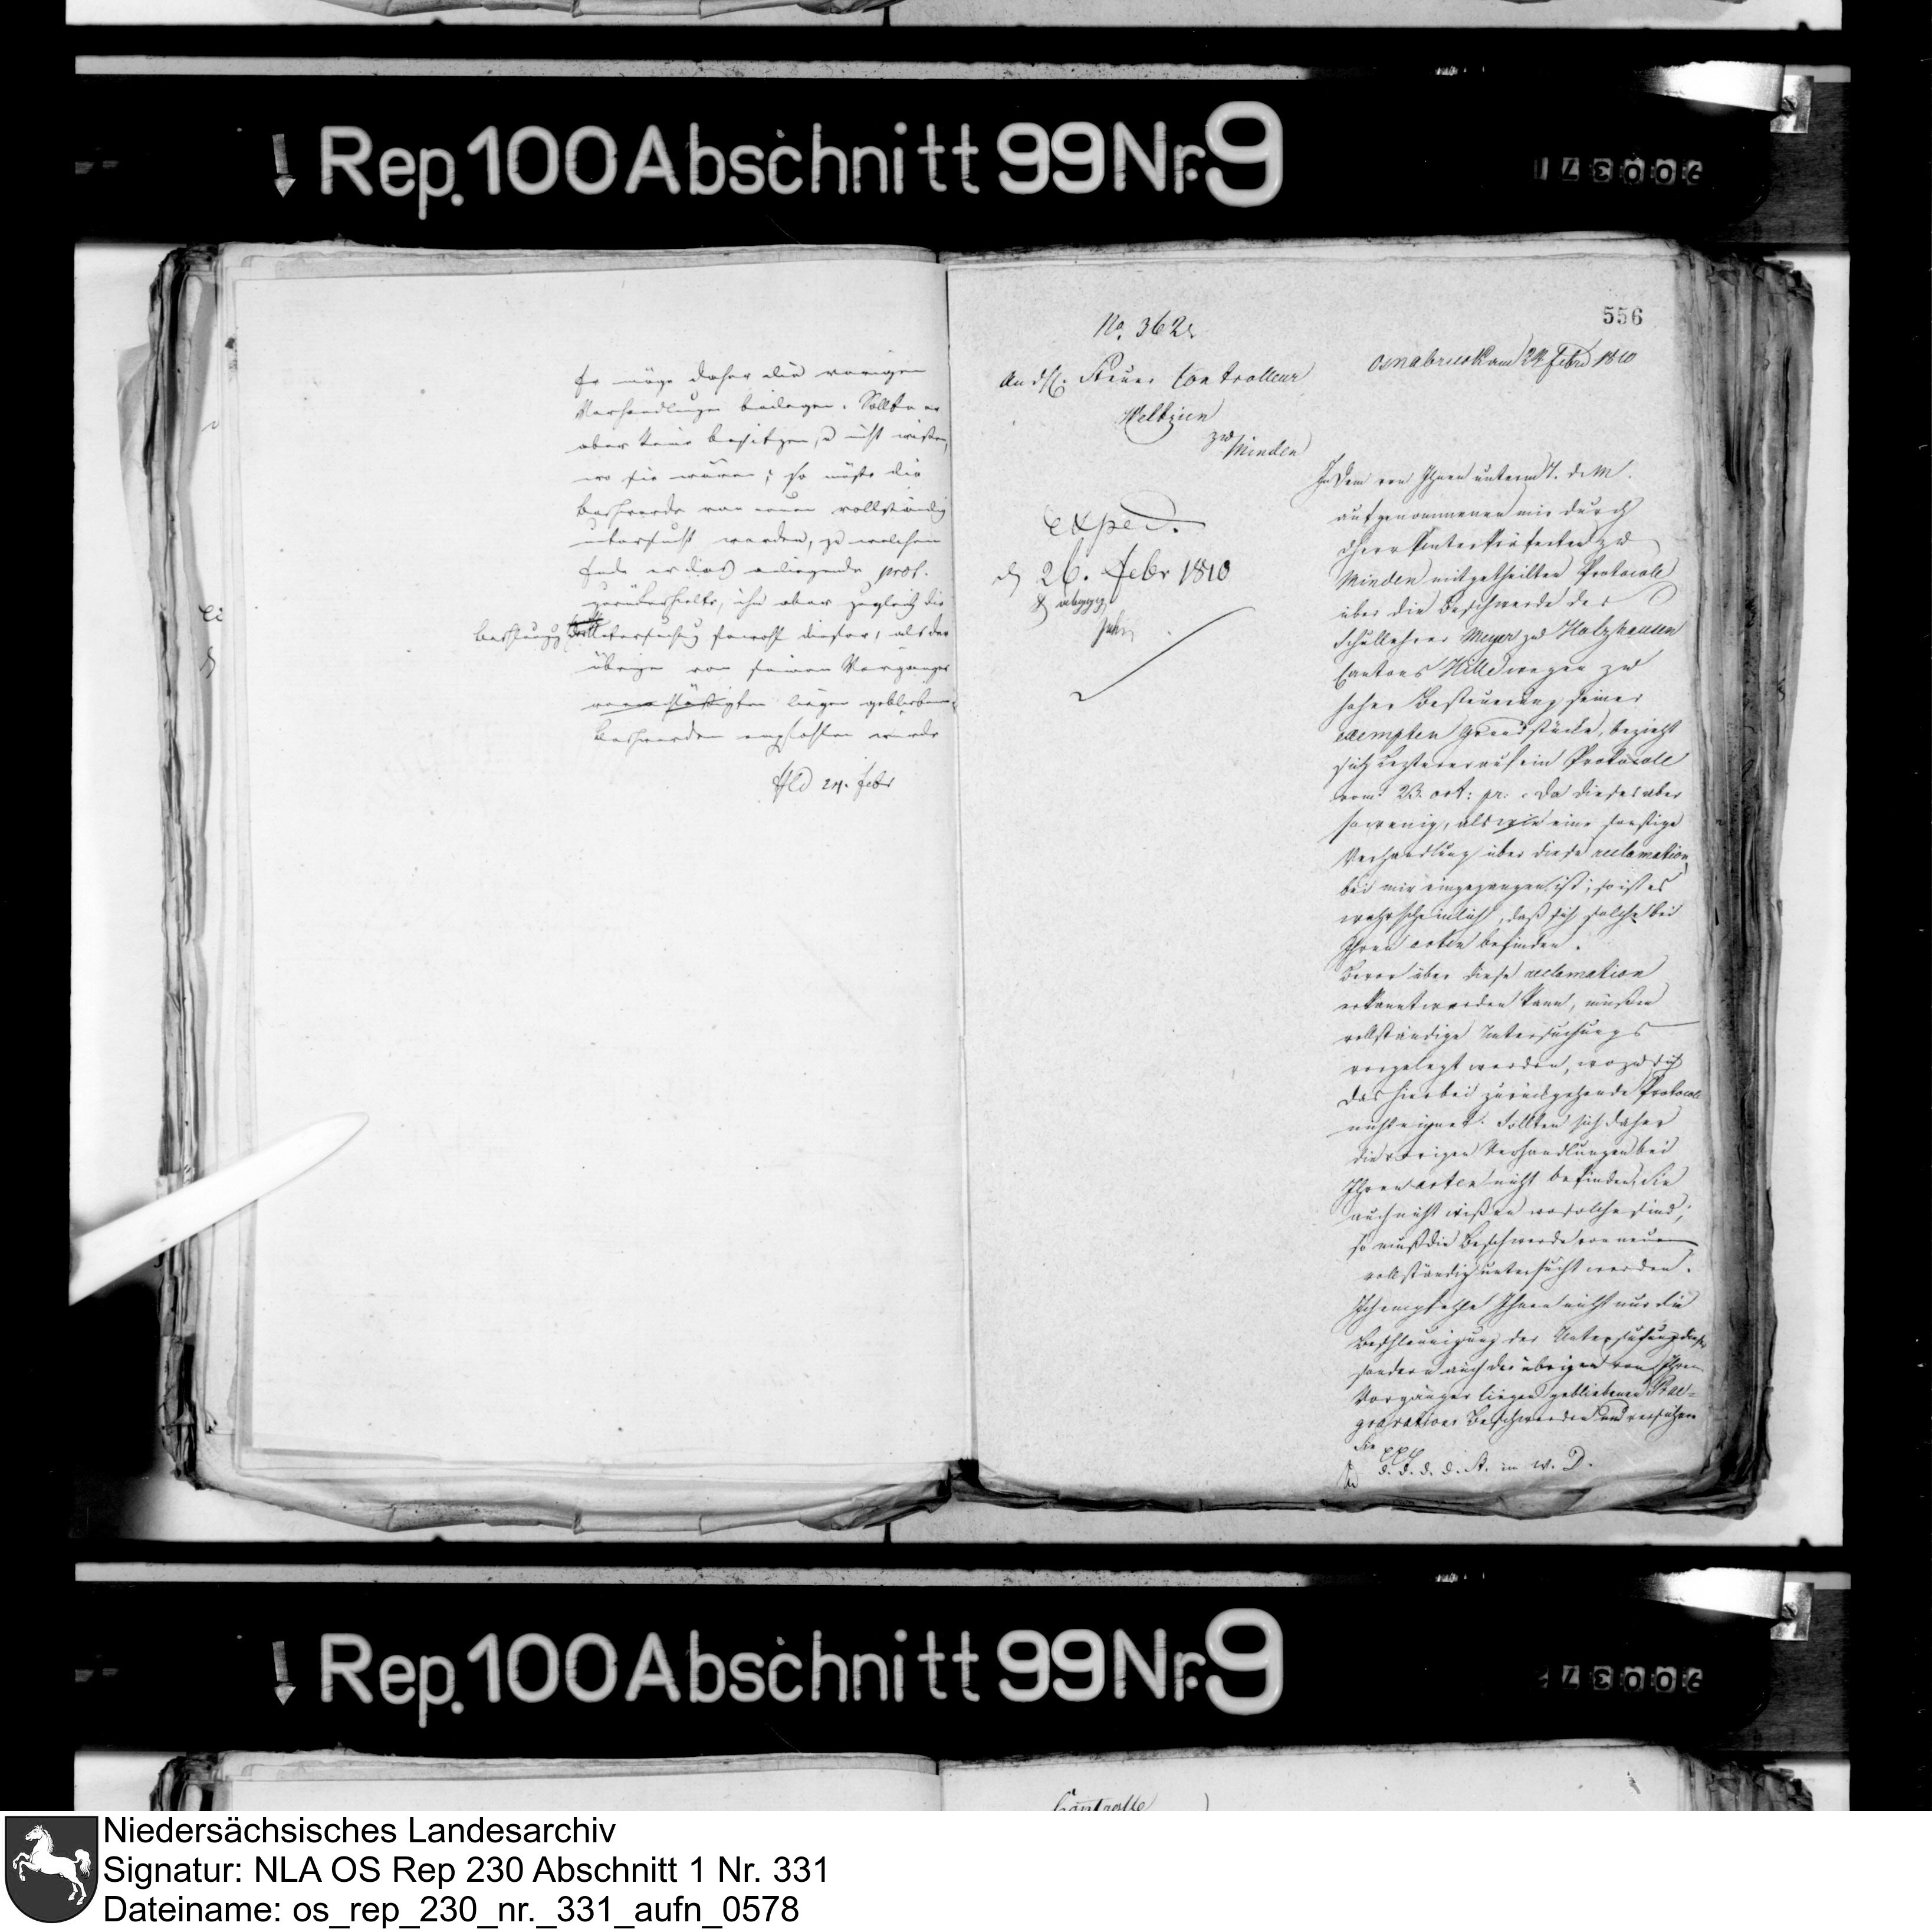 Rep. 100 Abschnitt 99 Nr. 9
Er möge daher die vorigen
Verhandlungen beilegen. Sollte er
aber keine besitzen, u nicht wißen,
wo sie wären; so müßte die
Beschwerde von neuen vollständig
untersucht werden, zu welchem
Ende er das anliegende Prot.
zurückerhielte, ihm aber zugleich die
Untersuchung sowohl dieser, als der
übrigen von seinem Vorgänger
liegen gebliebenen
Beschwerden empfohlen würde
24. Febr
556
No. 362
Osnabrück am 24 Febr 1810
An den H. Steuer Controlleur
Weltzien
zu Minden
exped.
d 26. Febr 1810
In dem von Ihnen unterm 7. d. M.
aufgenommenen mir durch
Herrn Unterpräfecten zu
Minden mitgetheilten Protocoll
über die Beschwerde des
Schullehrer Meyer zu Holzhausen
Cantons Hille wegen zu
hoher Besteuerung seiner
exempten Grundstücke, bezieht
sich letzterer auf ein Protocoll
vom 23. oct: pr: Da dieses aber
so wenig, als eine sonstige
Verhandlung über diese reclamation
bei mir eingegangen ist; so ist es
wahrscheinlich, daß sich solche bei
Ihren acten befinden.
Bevor über diese reclamation
erkannt werden kann, müßen
vollständige Untersuchungs
vorgelegt werden, wozu sich
das hierbei zurückgehende Protocoll
nicht eignet. Sollten sich daher
die vorigen Verhandlungen bei
Ihren acten nicht befinden, Sie
auch nicht wißen wo solche sind;
so muß die Beschwerde von neuem
vollständig untersucht werden.
Ich empfehle Ihnen nicht nur die
Beschleunigung der Untersuchung dieser
sondern auch der übrigen von Ihrem
Vorgänger liegen gebliebenen Prae-
gravations Beschwerden und versichere
Sie
d. d. d. d. A. m. w. D.
Rep. 100 Abschnitt 99 Nr. 9
Controlle
Niedersächsisches Landesarchiv
Signatur: NLA OS Rep 230 Abschnitt 1 Nr. 331
Dateiname: os_rep_230_nr._331_aufn_0578